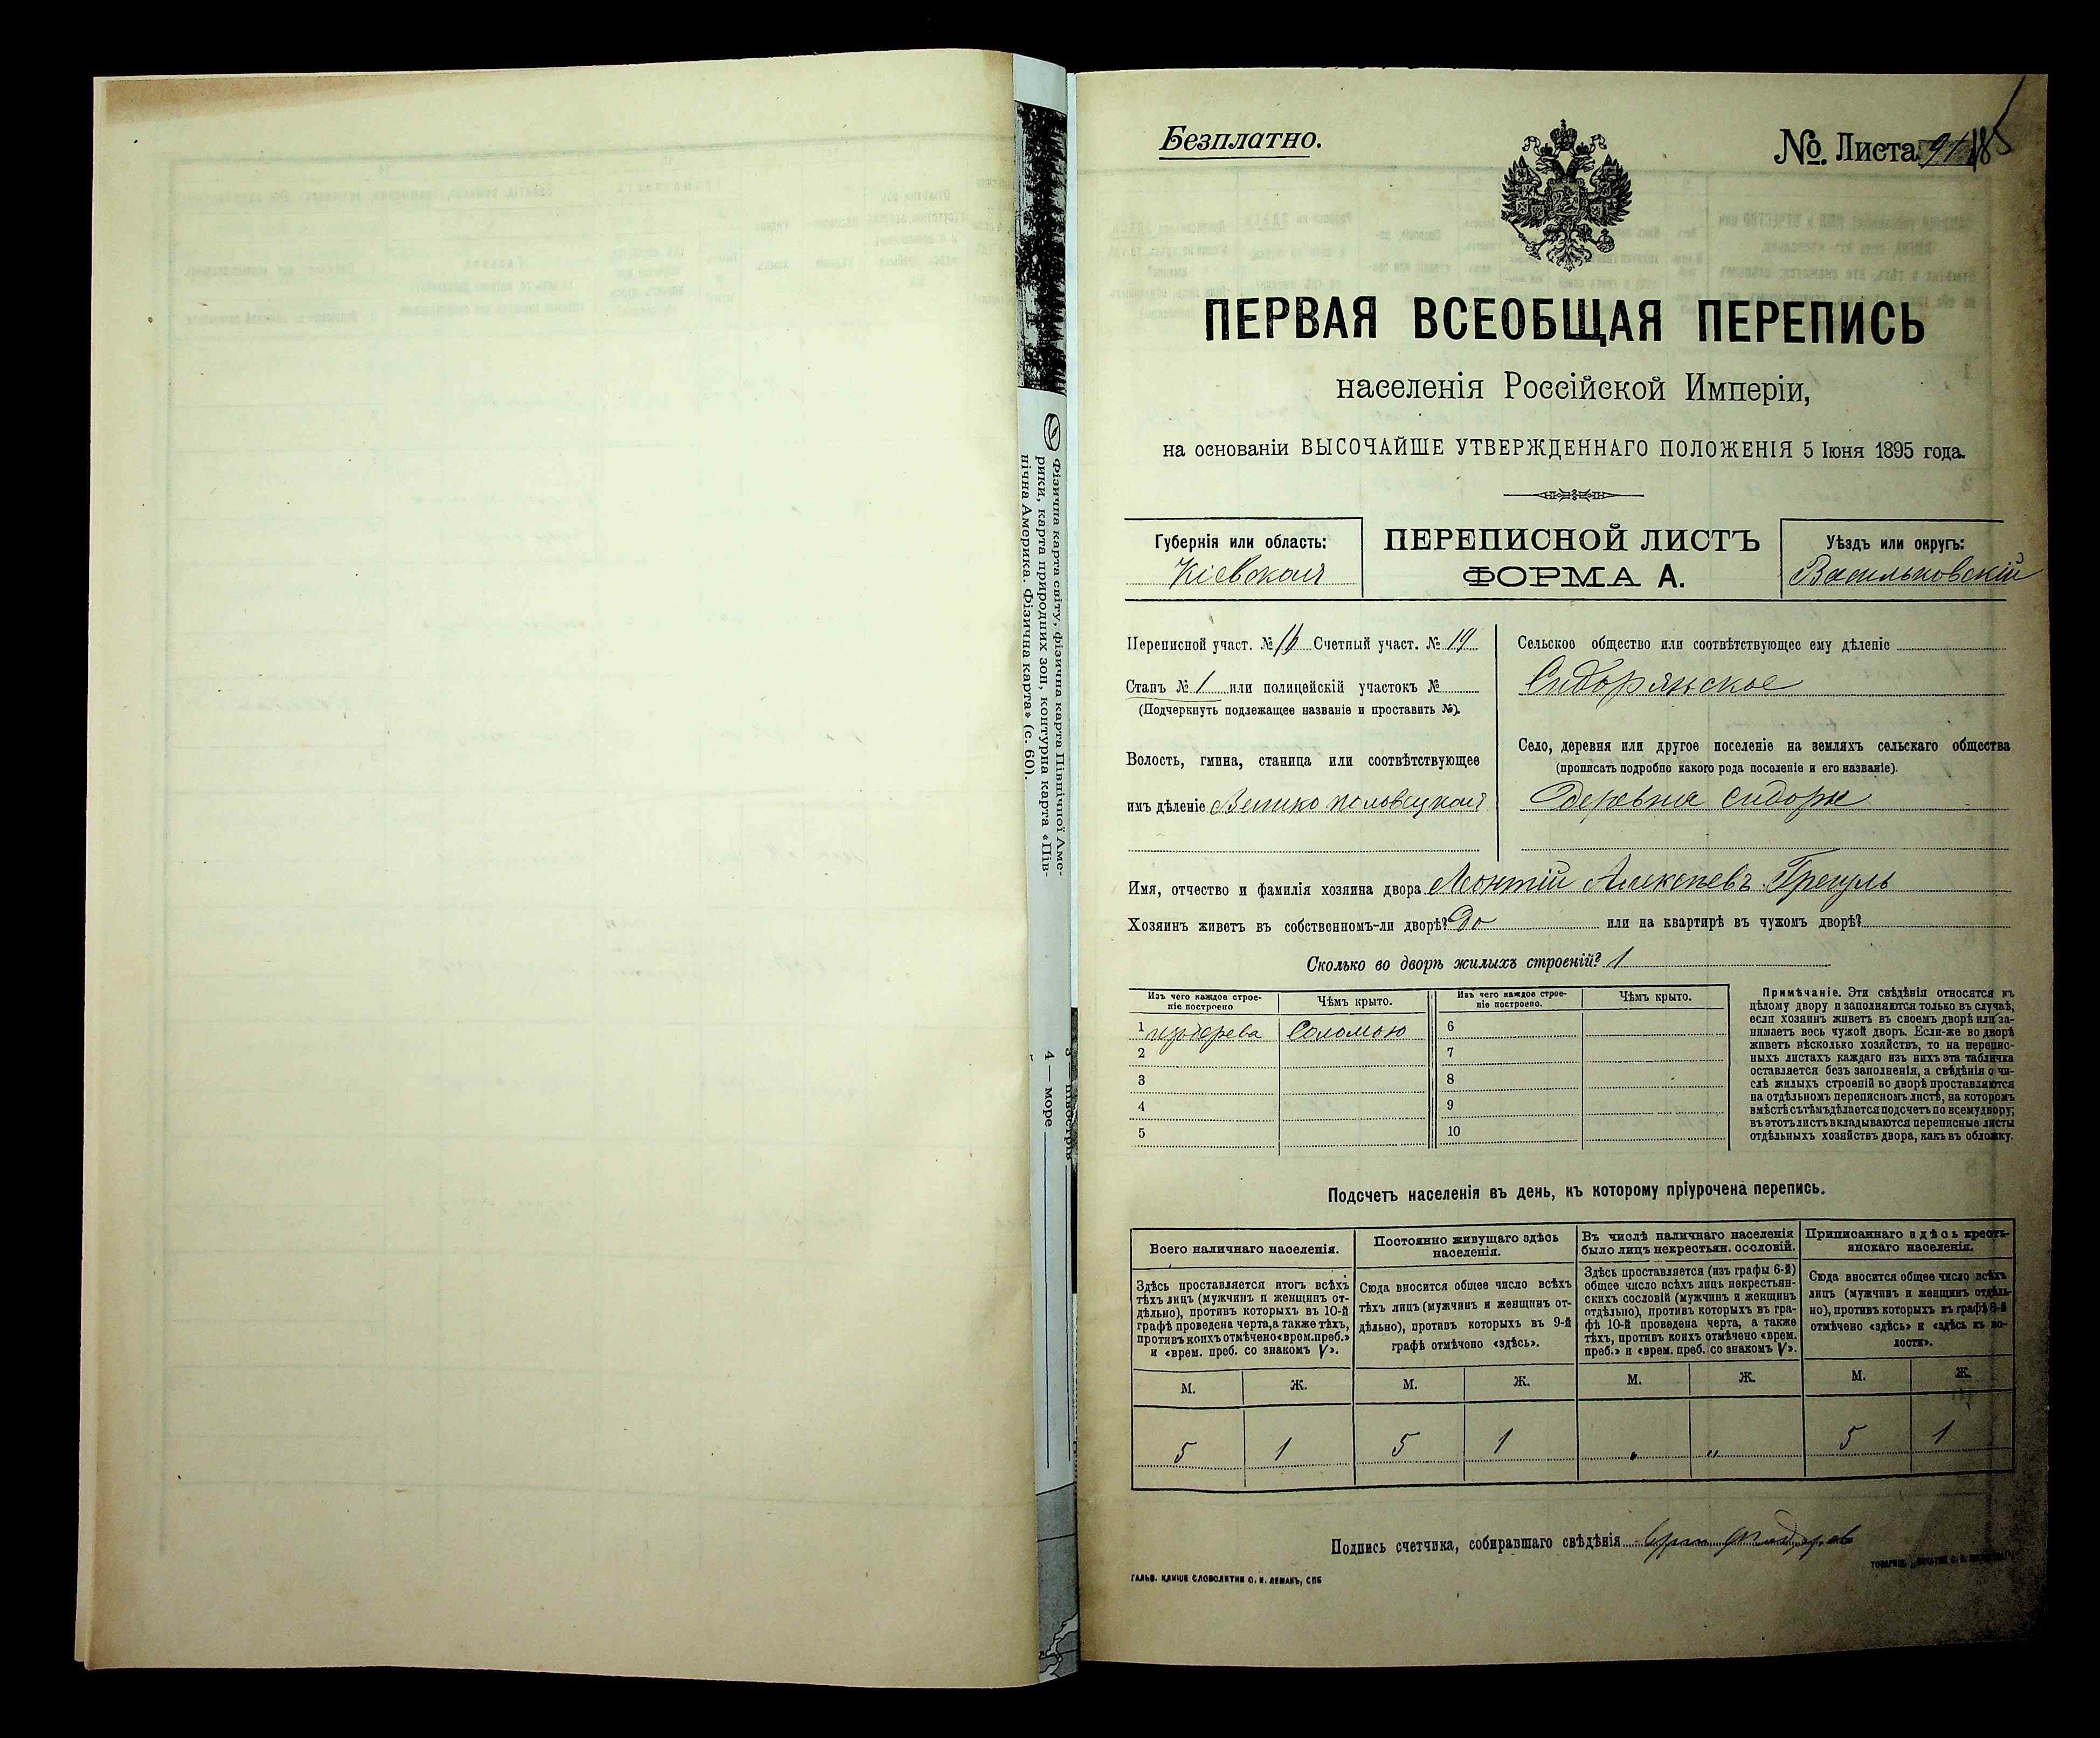 Безплатно.
№. Листа
ПЕРВАЯ ВСЕОБЩАЯ ПЕРЕПИСЬ
населенія Россійской Имперіи,
на основаніи ВЫСОЧАЙШЕ УТВЕРЖДЕННАГО ПОЛОЖЕНІЯ 5 Іюня 1895 года.
Губернія или область:
Кіевская
ПЕРЕПИСНОЙ ЛИСТЪ
ФОРМА А.
Уѣздъ или округъ:
Васильковскій
Переписной участ. № 16 Счетный участ. № 19
Станъ № 1 или полицейскій участокъ №
(Подчеркнуть подлежащее названіе и проставить №).
Волость, гмина, станица или соотвѣтствующее
имъ дѣленіе Велико половецкая
Сельское общество или соотвѣтствующее ему дѣленіе
Сидорянское
Село, деревня или другое поселеніе на земляхъ сельскаго общества
(прописать подробно какого рода поселеніе и его названіе).
Деревня Сидоры
Имя, отчество и фамилія хозяина двора Леонтій Алексѣевъ Грегуль
Хозяинъ живетъ въ собственномъ-ли дворѣ? Да или на квартирѣ въ чужомъ дворѣ?
Сколько во дворѣ жилыхъ строеній? 1
Изъ чего каждое строе-
ніе построено
Чѣмъ крыто.
Изъ чего каждое строе-
ніе построено.
Чѣмъ крыто.
1 изъ дерева Соломою 6
2 7
3 8
4 9
5 10
Примѣчаніе. Эти свѣдѣнія относятся къ
цѣлому двору и заполняются только въ случаѣ,
если хозяинъ живетъ въ своемъ дворѣ или за-
нимаетъ весь чужой дворъ. Если-же во дворѣ
живетъ нѣсколько хозяйствъ, то на перепис-
ныхъ листахъ каждаго изъ нихъ эта табличка
оставляется безъ заполненія, а свѣдѣнія о чи-
слѣ жилыхъ строеній во дворѣ проставляются
на отдѣльномъ переписномъ листѣ, на которомъ
вмѣстѣ съ тѣмъ дѣлается подсчетъ по всему двору;
въ этотъ листъ вкладываются переписные листы
отдѣльныхъ хозяйствъ двора, какъ въ обложку.
Подсчетъ населенія въ день, къ которому пріурочена перепись.
Всего наличнаго населенія.
Здѣсь проставляется итогъ всѣхъ
тѣхъ лицъ (мужчинъ и женщинъ от-
дѣльно), противъ которыхъ въ 10-й
графѣ проведена черта, а также тѣхъ,
противъ коихъ отмѣчено «врем. преб.»
и «врем. преб. со знакомъ V».
Постоянно живущаго здѣсь
населенія.
Сюда вносится общее число всѣхъ
тѣхъ лицъ (мужчинъ и женщинъ от-
дѣльно), противъ которыхъ въ 9-й
графѣ отмѣчено «здѣсь».
Въ числѣ наличнаго населенія
было лицъ некрестьян. сословій.
Здѣсь проставляется (изъ графы 6-й)
общее число всѣхъ лицъ некрестьян-
скихъ сословій (мужчинъ и женщинъ
отдѣльно), противъ которыхъ въ гра-
фѣ 10-й проведена черта, а также
тѣхъ, противъ коихъ отмѣчено «врем.
преб.» и «врем. преб. со знакомъ V».
Приписаннаго здѣсь кресть-
янскаго населенія.
Сюда вносится общее число всѣхъ
лицъ (мужчинъ и женщинъ отдѣль-
но), противъ которыхъ въ графѣ 8-й
отмѣчено «здѣсь» и «здѣсь въ во-
лости».
М. Ж. М. Ж. М. Ж. М. Ж.
5 1 5 1 „ „ 5 1
Подпись счетчика, собиравшаго свѣдѣнія
ГАЛЬВ. КЛИШЕ СЛОВОЛИТНИ О. И. ЛЕМАНЪ, СПБ
Фізична карта світу, фізична карта Північної Аме-
рики, карта природних зон, контурна карта «Пів-
нічна Америка. Фізична карта» (с. 60).
3 — півострів
4 — море